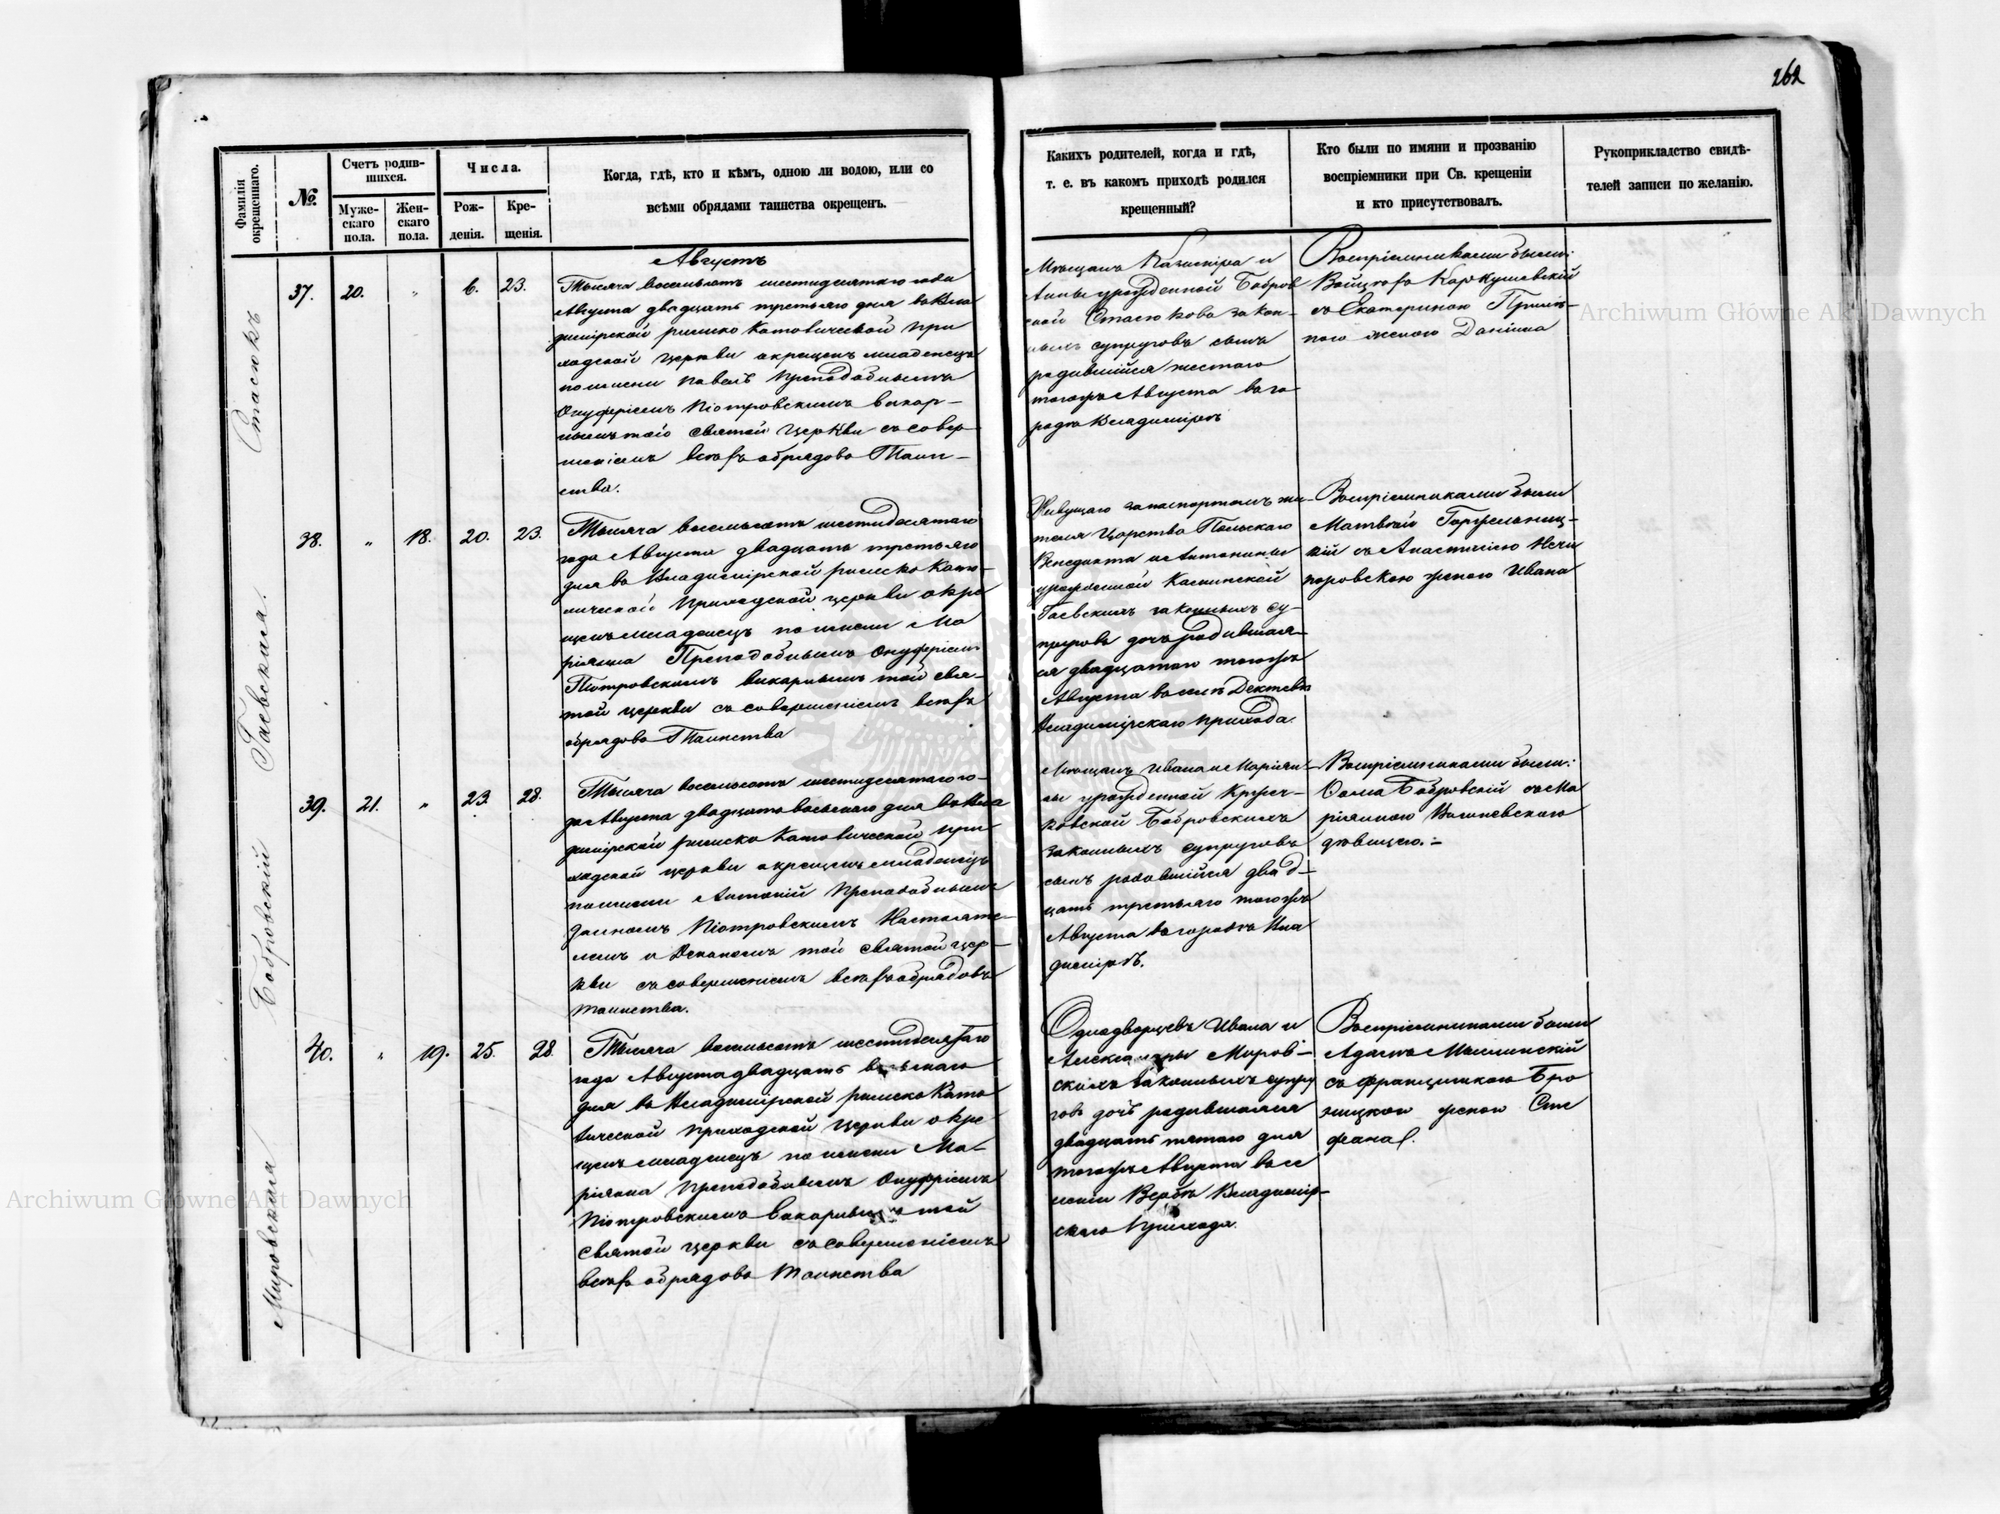 262
Фамилія окрещеннаго.
№.
Счетъ родив-
шихся.
Муже-
скаго
пола.
Жен-
скаго
пола.
Числа.
Рож-
денія.
Кре-
щенія.
Когда, гдѣ, кто и кѣмъ, одною ли водою, или со
всѣми обрядами таинства окрещенъ.
Какихъ родителей, когда и гдѣ,
т. е. въ какомъ приходѣ родился
крещенный?
Кто были по имяни и прозванію
воспріемники при Св. крещеніи
и кто присутствовалъ.
Рукоприкладство свидѣ-
телей записи по желанію.
Стасюкъ
37. 20. " 6. 23.
Августъ
Тысяча восемьсотъ шестидесятаго года
Августа двадцать третьяго дня въ Вла
димірской римско Католической при
ходской церкви окрещенъ младенецъ
по имени Павелъ Преподобнымъ
Онуфріемъ Піотровскимъ викар-
нымъ той святой церкви съ совер-
шеніемъ всѣхъ обрядовъ Таин-
ства.
Мѣщанъ Казиміра и
Анны урожденной Бобров
ской Стасюковъ закон-
ныхъ супруговъ сынъ
родившійся шестаго
тогожъ Августа въ го
родѣ Владимірѣ
Воспріемниками были:
Войцехъ
съ Екатериною
женою Даніила
Гаевская.
38. " 18. 20. 23.
Тысяча восемьсотъ шестидесятаго
года Августа двадцать третьяго
дня въ Владимірской римско Като-
лической Приходской церкви окре
щенъ младенецъ по имени Ма
ріянна Преподобнымъ Онуфріемъ
Піотровскимъ викарнымъ той свя-
той церкви съ совершеніемъ всѣхъ
обрядовъ Таинства
Живущаго за паспортомъ жи-
теля Царства Польскаго
Венедикта и Антонины
урожденной Каминской
Гаевскихъ законныхъ су-
пруговъ дочь родившая-
ся двадцатаго тогожъ
Августа въ
Владимірскаго прихода.
Воспріемниками были
Матвѣй
съ Анастасіею
женою Ивана
Бобровскій
39. 21. " 23. 28.
Тысяча восемьсотъ шестидесятаго го-
да Августа двадцать восьмаго дня въ Вла
димірской римско Католической при
ходской церкви окрещенъ младенецъ
по имени Антоній Преподобнымъ
Піотровскимъ Настояте-
лемъ и Деканомъ той святой цер-
кви съ совершеніемъ всѣхъ обрядовъ
таинства.
Мѣщанъ Ивана и Маріян-
ны урожденной
Бобровскихъ
законныхъ супруговъ
сынъ родившійся двад-
цать третьяго тогожъ
Августа въ городѣ Вла
димірѣ.
Воспріемниками были:
Ѳома Бобровскій съ Ма
ріянною
дѣвицею.
Мировская
40. " 19. 25. 28.
Тысяча восемьсотъ шестидесятаго
года Августа двадцать восьмаго
дня въ Владимірской римско Като
лической приходской церкви окре
щенъ младенецъ по имени Ма-
ріянна Преподобнымъ Онуфріемъ
Піотровскимъ викарнымъ той
святой церкви съ совершеніемъ
всѣхъ обрядовъ таинства
Однодворцевъ Ивана и
Александры Миров-
скихъ законныхъ супру
говъ дочь родившаяся
двадцать пятаго дня
тогожъ Августа въ се
леніи Вербѣ Владимір-
скаго прихода.
Воспріемниками были
Адамъ
съ Францишкою
женою Сте
фана.
Archiwum Główne Akt Dawnych
Archiwum Główne Akt Dawnych